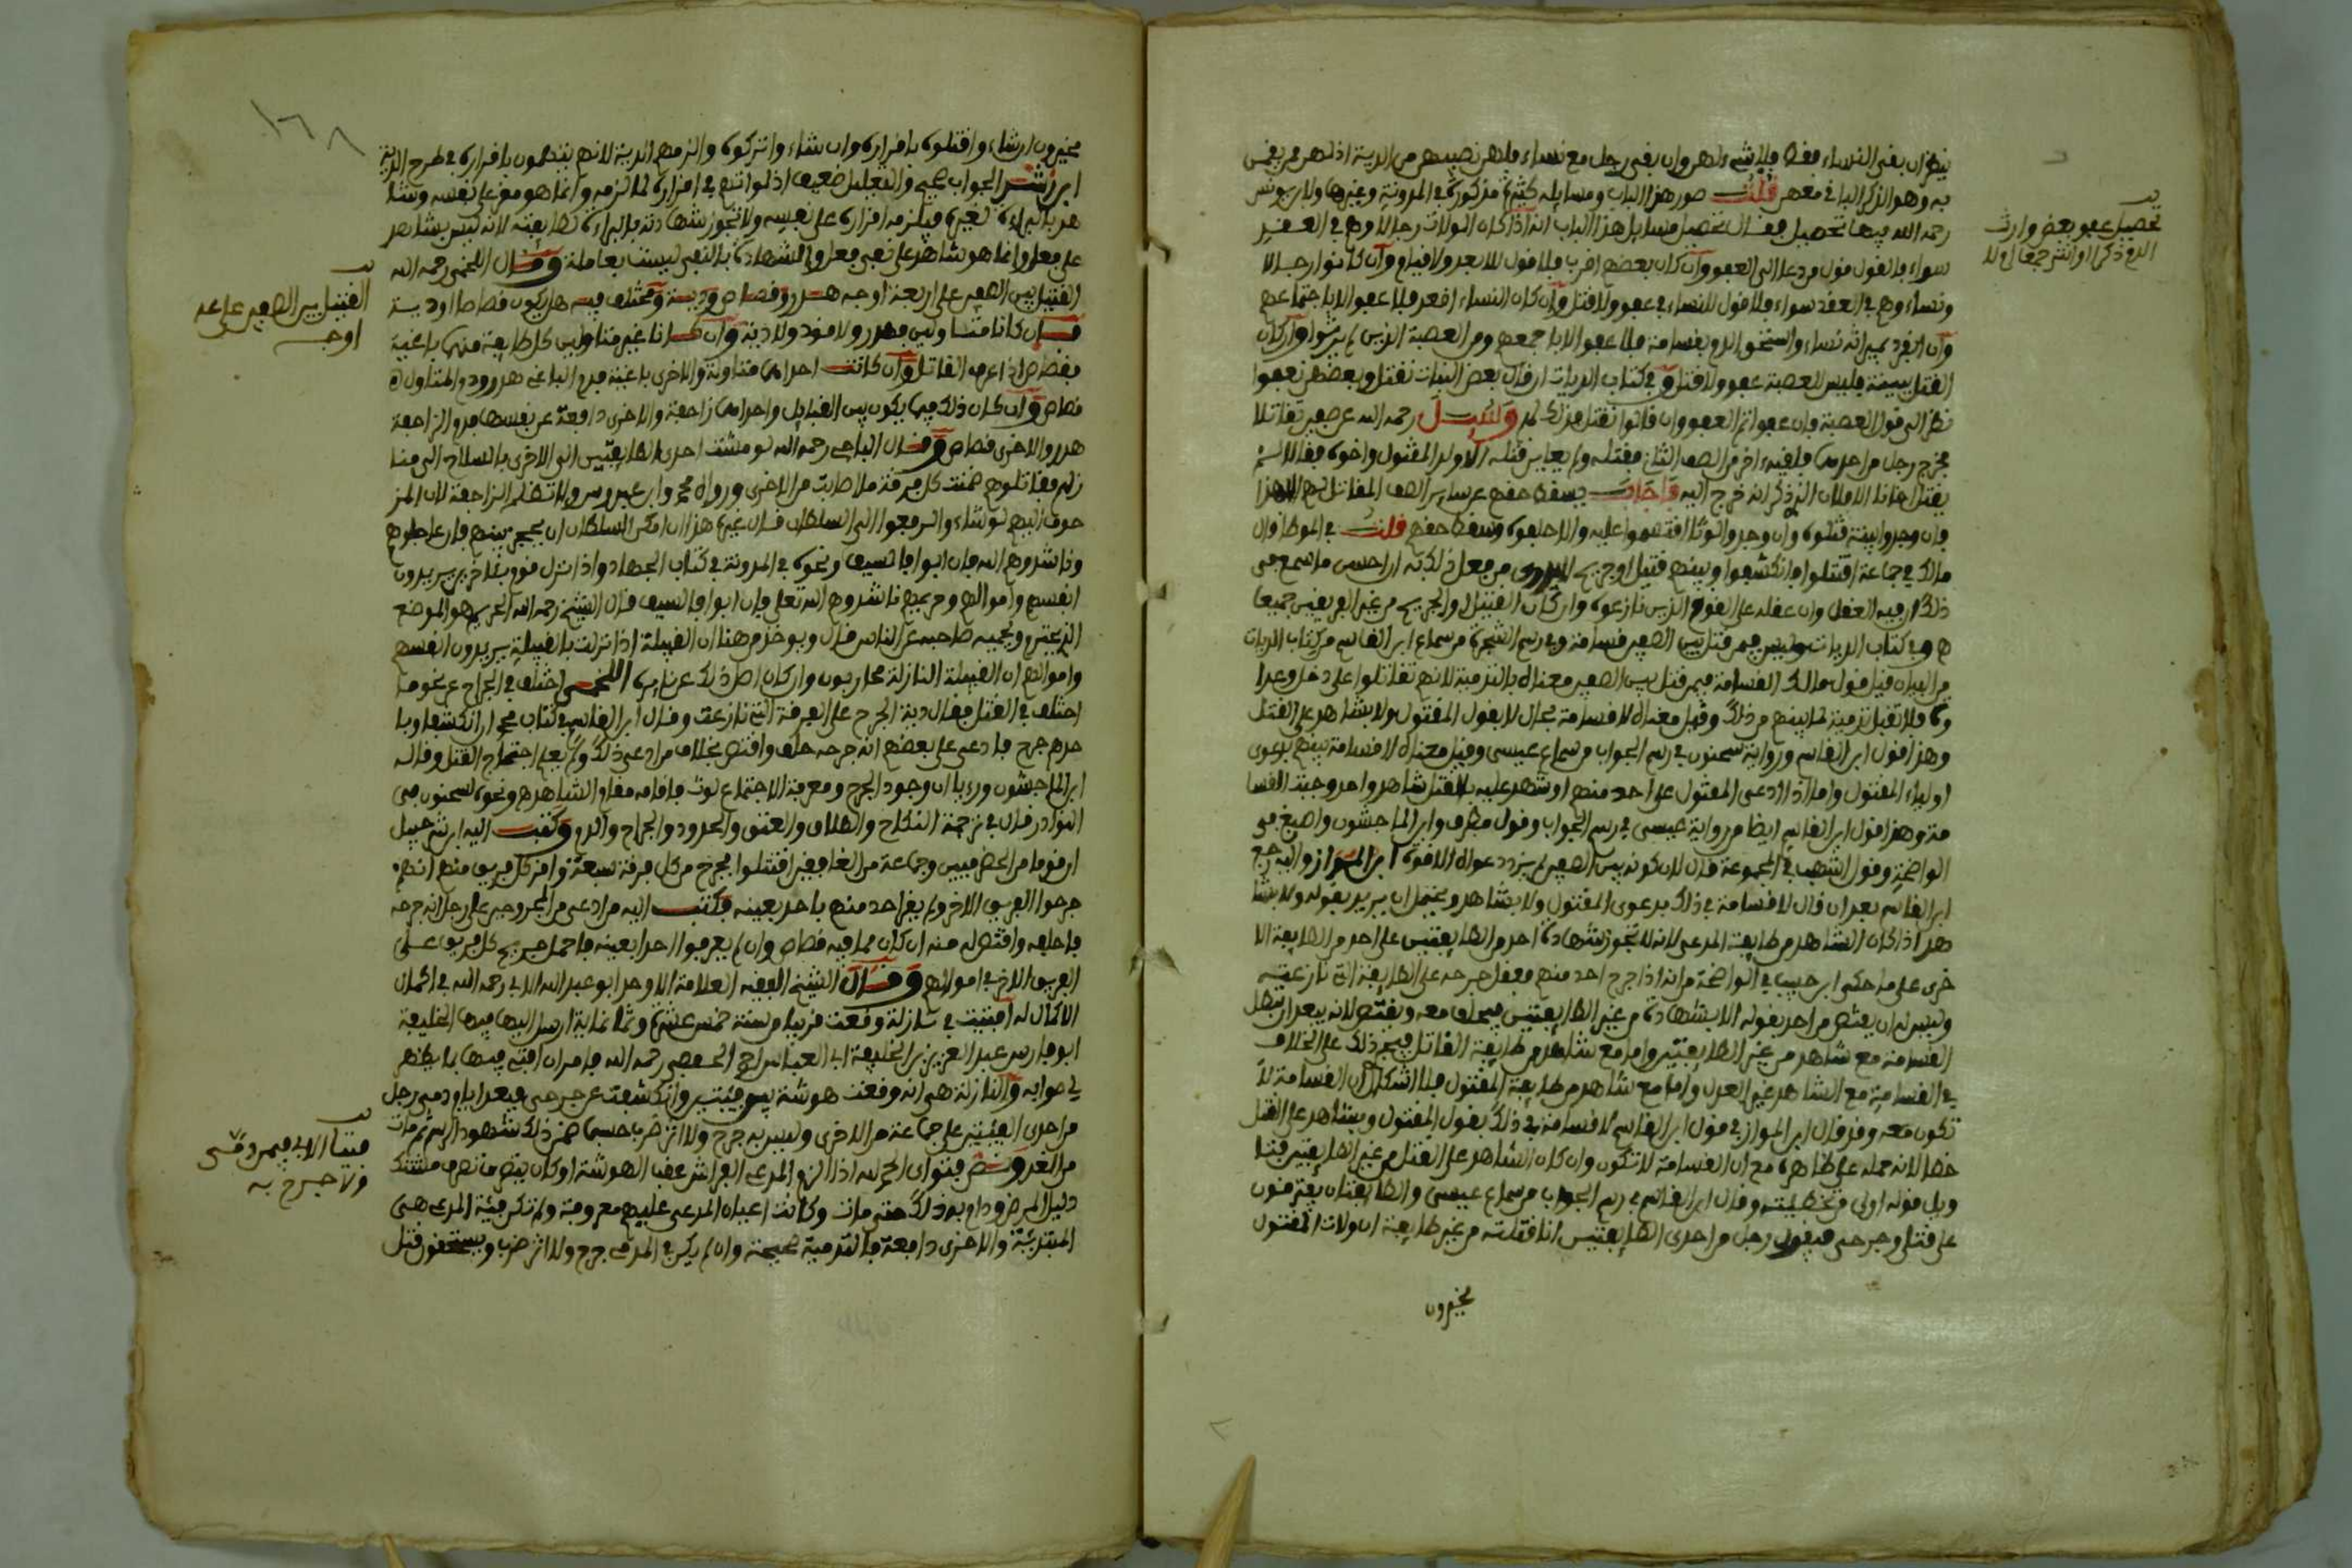 ينظر ان بقي النساء فقط فلا شيء لهن وان بقي رجل مع نساء فلهن نصيبهن من الدية اذا لم يعفين
به وهو الذكر الباقي معهن قلت صور هذا الباب ومسايله كثيرة مذكورة في المدونة وغيرها ولابن يونس
رحمه الله فيها تحصيل فقال تحصيل مسايل هذا الباب انه اذا كان الولات رجالا وهم في العقد
سواء فالقول قول من دعا الى العفو وان كان بعضهم اقرب فلا قول للابعد ولا قيام وان كانوا رجالا
ونساء وهم في العقد سواء فلا قول للنساء في عفو ولا قتل وان كان النساء اقعد فلا عفو الا باجتماعهم
وان انفرد بميراثه نساء واستحق الدم بقسامة فلا عفو الا باجمعهم ومن العصبة الذين لم يرثوا وان كان
القتل ببينة فليس للعصبة عفو ولا قتل وفي كتاب الديات ان قال بعض البنات نقتل وبعضهن نعفوا
نظر الى قول العصبة فان عفوا تم العفو وان قالوا نقتل فذلك لهم وسيل رحمه الله عن صفين تقاتلا
فخرج رجل من احدهما فلقيه اخر من الصف الثاني فقتله ولم يعاين قتله الا ولد المقتول واخوه فقال لا
يقتل ابانا الا فلان الذي ذكر انه خرج اليه فاجاب
فان وجدوا بينة قتلوه وان وجدوا لوثا اقسموا عليه والا حلفوه وسقط حقهم قلت في الموطا قال
مالك في جماعة اقتتلوا فانكشفوا وبينهم قتيل او جريح لا يدرى من فعل ذلك به ان احسن ما سمع في
ذلك ان فيه العقل وان عقله على القوم الذين نازعوه وان كان القتيل او الجريح من غير الفريقين فعليهما جميعا
وفي كتاب الديات وليس فيمن قتل بين الصفين قسامة وفي رسم الشجرة من سماع ابن القاسم من كتاب الديات
من البيان قيل قول مالك لا قسامة فيمن قتل بين الصفين معناه بالتدمية لانهم تقاتلوا على دخل وعدا
وة فلا تقبل تدمية لما بينهم من ذلك وقيل معناه لا قسامة بحال لا بقول المقتول ولا بشاهد على القتل
وهذا قول ابن القاسم ورواية سحنون في رسم الجواب من سماع عيسى وقيل معناه لا قسامة بينهم بدعوى
اولياء المقتول واما اذا ادعى المقتول على احد منهم او شهد عليه بالقتل شاهد واحد وجبت القسا
مة وهذا قول ابن القاسم ايضا من رواية عيسى في رسم الجواب وقول مطرف وابن الماجشون واصبغ في
الواضحة وقول اشهب في المجموعة قال لان كونه بين الصفين لم يزد دعواه الا قوة ابن المواز واليه رجع
ابن القاسم بعد ان قال لا قسامة في ذلك بدعوى المقتول ولا بشاهد ويحتمل ان يريد بقوله ولا بشا
هد اذا كان الشاهد من طايفة المدعي لانه لا تجوز شهادة احد من الطايفتين على احد من الطايفة الا
خرى على ما حكى ابن حبيب في الواضحة من انه اذا جرح احد منهم فعقل جرحه على الطايفة التي نازعته
وليس له ان يقتص من احد بقوله الا بشهادة من غير الطايفتين فيحلف معه ويقتص لانه يبعد ان تبطل
القسامة مع شاهد من غير الطايفتين واما مع شاهد من طايفة القاتل فيجري ذلك على الخلاف
في القسامة مع الشاهد غير العدل واما مع شاهد من طايفة المقتول فلا اشكال ان القسامة لا
تكون معه وقد قال ابن المواز في قول ابن القاسم لا قسامة في ذلك بقول المقتول وبشاهد على القتل
خطا لانه حمله على ظاهره من ان القسامة لا تكون وان كان الشاهد على القتل من غير الطايفتين
قوله اولى من تخطيته وقال ابن القاسم في رسم الجواب من سماع عيسى والطايفتان يفترقون
على قتلى وجرحى فيقول رجل من احدى الطايفتين انا قتلته من غير طايفته ان ولات المقتول
مخيرون
تحصيل عفو بعض وارث
الدم ذكرا او انثى جمعا اولا
١٦٨
مخيرون ان شاءوا قتلوه باقراره وان شاءوا تركوه والزموهم الدية لانهم يتهمون باقراره في طرح الدية
ابن رشد الجواب صحيح والتعليل ضعيف اذ لو اتهم في اقراره لما لزمه وانما هو مقر على نفسه وشا
هد بالبراءة لغيره فيلزمه اقراره على نفسه ولا تجوز شهادته بالبراءة لطايفته لانه ليس بشاهد
على فعل وانما هو شاهد على نفي فعل والشهادة بالنفي ليست بعاملة وقال اللخمي رحمه الله
القتيل بين الصفين على اربعة اوجه هدر وقصاص ودية ومختلف فيه هل يكون قصاصا او دية
فان كانا متاولين فهدر ولا قود ولا دية وان كانا غير متاولين كل طايفة منهما باغية
فقصاص اذا عرف القاتل وان كانت احداهما متاولة والاخرى باغية فدم الباغي هدر ودم المتاول
قصاص وان كان ذلك فيما يكون بين القبايل واحداهما زاحفة والاخرى دافعة عن نفسها فدم الزاحفة
هدر والاخرى قصاص وقال الباجي رحمه الله لو مشت احدى الطايفتين الى الاخرى بالسلاح الى منا
زلهم فقاتلوهم ضمنت كل فرقة ما اصابت من الاخرى ورواه محمد وابن عبدوس ولا تطل دم الزاحفة لان المز
حوف اليهم لو شاءوا لم رفعوا الى السلطان قال غيره هذا ان امكن السلطان ان يحجز بينهم فان عاجلوهم
وناشدوهم الله فان ابوا فالسيف ونحوه في المدونة في كتاب الجهاد واذا نزل قوم باخرين يريدون
انفسهم واموالهم وحريمهم ناشدوهم الله تعلى فان ابوا فالسيف قال الشيخ رحمه الله
ويحميه صاحبه عن الناس قال ويوخذ من هنا ان القبيلة اذا نزلت بالقبيلة يريدون انفسهم
واموالهم ان القبيلة النازلة محاربون وان كان اصل ذلك عن نايرة اللخمي اختلف في الجراح عن نحو ما
اختلف في القتل فقال دية الجرح على الفرقة التي نازعت وقال ابن القاسم في كتاب محمد ان انكشفوا وبا
حدهم جرح فادعى على بعضهم انه جرحه حلف واقتص بخلاف من ادعى ذلك ولم يعلم اجتماع القتل وقاله
ابن الماجشون وراى ان وجود الجرح ومعرفة الاجتماع لوث فاقامه مقام الشاهد ونحوه لسحنون في
النوادر قال في ترجمة النكاح والطلاق والعتق والحدود والجراح والدم وكتب اليه ابن شرحبيل
ان قوما من الحضرميين وجماعة من الغافقين اقتتلوا فجرح من كل فرقة سبعة واقر كل فريق منهم انهم
جرحوا الفريق الاخر ولم يقر احد منهم باحد بعينه فكتب اليه من ادعى من المجروحين على رجل انه جرحه
فاحلفه واقتص له منه ان كان مما فيه قصاص وان لم يعرفوا احدا بعينه فاحمل جريح كل فريق على
الفريق الاخر في اموالهم وقال الشيخ الفقيه العلامة الاوحد ابو عبد الله الابي رحمه الله في اكمال
الاكمال له افتيت في نازلة وقعت قريبا من سنة خمس عشرة وثمانماية ارسل اليها فيها الخليفة
ابو فارس عبد العزيز بن الخليفة ابي العباس احمد الحفصي رحمه الله فامر ان افتي فيها بما يظهر
في صوابه والنازلة هي انه وقعت هوشة بين فيتين وانكشفت عن جرحى فبعد ايام دمى رجل
من احدى الفيتين على جماعة من الاخرى وليس به جرح ولا اثر ضرب حسبما ضمن ذلك شهود الرسم ثم مات
من الغد ونص فتواي الحمد لله اذا لزم المدمي الفراش عقب الهوشة او كان يتصرف تصرف مشتك
دليل المرض ودام به ذلك حتى مات وكانت اعيان المدمى عليهم معروفة ولم تكن فية المدمي هي
المبتدئة والاخرى دافعة فالتدمية صحيحة وان لم يكن في المدمي جرح ولا اثر ضرب ويستحقون قتل
القتيل بين الصفين على اربعة
اوجه
فتيا الابي فيمن دمى
ولا جرح به